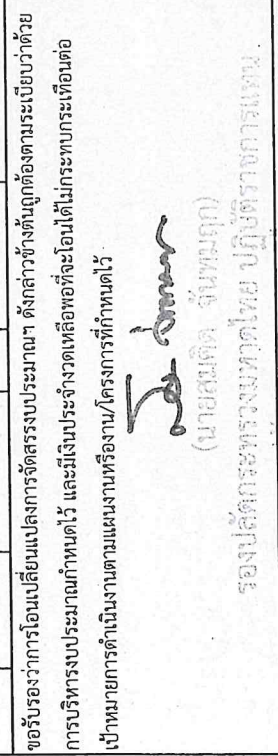 ขอรับรองว่าการโอนเปลี่ยนแปลงการจัดสรรงบประมาณฯ ดังกล่าวข้างต้นถูกต้องตามระเบียบว่าด้วย
การบริหารงบประมาณกำหนดไว้ และมีเงินประจำงวดเหลือพอที่จะโอนได้ไม่กระทบกระเทือนต่อ
เป้าหมายการดำเนินงานตามแผนงานหรืองาน/โครงการที่กำหนดไว้
(นายสมคิด จันทมฤก)
รองปลัดกระทรวงมหาดไทย ปฏิบัติราชการแทน